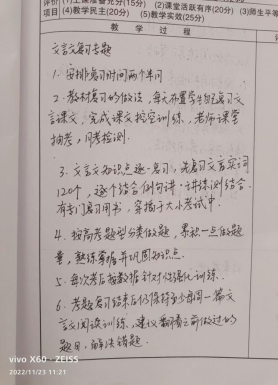 评价 (1)上课准备充分(15分) (2)课堂活跃有序(20分) (3)师生平等
项目 (4)教学民主(20分) (5)教学实效(25分)
教 学 过 程
文言文复习专题
1. 安排复习时间两个半月
2. 教材复习的做法，每天布置学生自己复习文
言课文，完成课文挖空训练，老师课堂
抽考，月考检测.
3. 文言文知识点逐一复习，先复习文言实词
120个，逐个结合例句讲·讲练测结合.
有专门复习用书，穿插于大小考试中.
4. 按高考题型分类做题，累积一点做题
量，熟练掌握并巩固知识点.
5. 每次考后按数据针对性强化训练.
6. 考题复习结束后仍保持至少每周一篇文
言文阅读训练，建议翻看之前做过的
题目，解决错题.
vivo X60 · ZEISS
2022/11/23 11:21